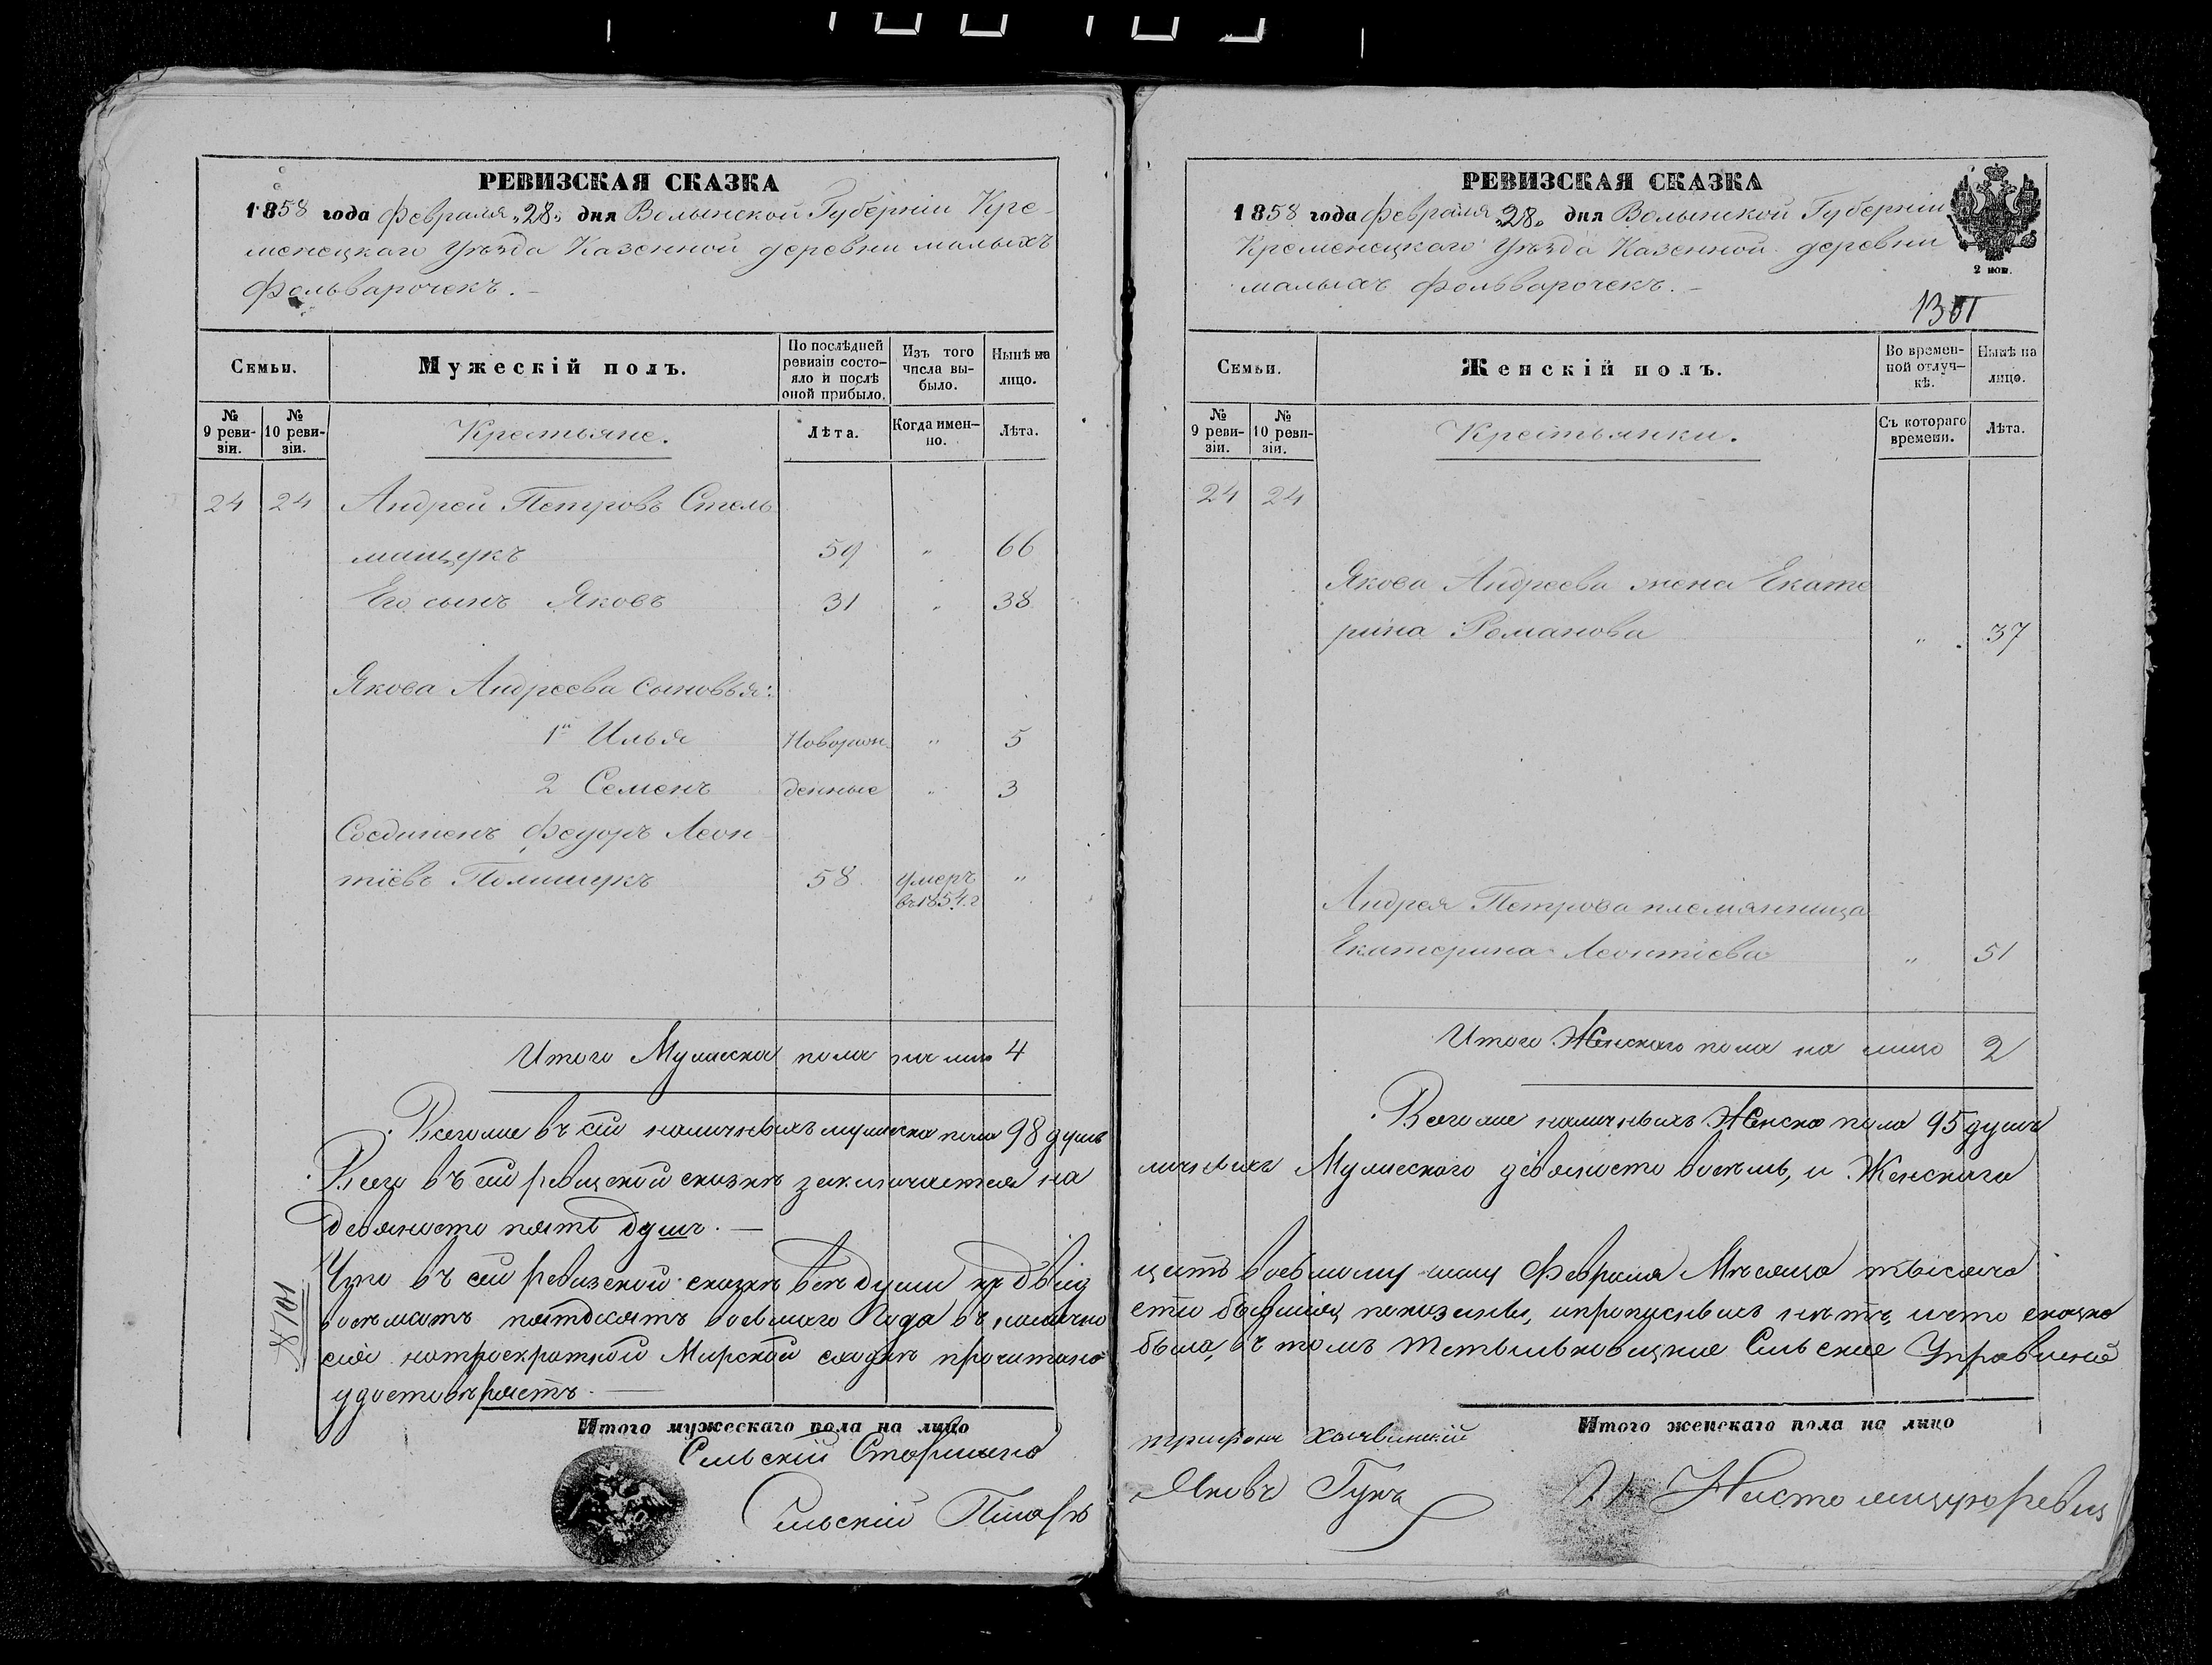 РЕВИЗСКАЯ СКАЗКА
1858 года Февраля „28„ дня Волынской Губерніи Кре-
менецкаго Уѣзда Казенной деревни малыхъ
Фольварочекъ.
Семьи.
Мужескій полъ.
По послѣдней ревизіи состо-яло и послѣ оной прибыло.
Изъ того числа вы-было.
Нынѣ на лицо.
№ 9 реви-зіи.
№ 10 реви-зіи.
Крестьяне.
Лѣта.
Когда имен-но.
Лѣта.
24 24 Андрей Петровъ Стель
мащукъ 59 „ 66
Его сынъ Яковъ 31 „ 38
Якова Андреева сыновья:
1й Илья Новорож „ 5
2 Семенъ денные „ 3
Соединенъ Федоръ Леон
тіевъ Полищукъ 58 умеръ „
въ 1854 г
Итого Мужеска пола на лицо 4
Всего же въ сей наличныхъ мужеска пола 98 душъ
Всего въ сей ревизской сказкѣ заключается на
девяносто пять душъ.
Что въ сей ревизской сказкѣ всѣ души
восемьсотъ пятдесятъ восьмого Года въ
сія на троекратной Мирской сходкѣ прочитана
удостовѣряетъ.
Итого мужескаго пола на лицо
Сельскій Старшина
Сельскій Писарь
РЕВИЗСКАЯ СКАЗКА
1858 года Февраля „28„ дня Волынской Губерніи
Кременецкаго Уѣзда Казенной деревни
малыхъ Фольварочекъ.
2 коп.
Семьи.
Женскій полъ.
Во времен-ной отлуч-кѣ.
Нынѣ на лицо.
№ 9 реви-зіи.
№ 10 реви-зіи.
Крестьянки.
Съ котораго времени.
Лѣта.
24 24
Якова Андреева жена Екате
рина Романова „ 37
Андрея Петрова племянница
Екатерина Леонтіева „ 51
Итого Женскаго пола на лицо 2
Всего же наличныхъ Женска пола 95 душъ
личныхъ Мужескаго девяносто восемь, и Женскаго
цать восьмому Февраля Мѣсяца тысяча
показаны, и пропускныхъ нѣтъ, и что сказка
была, въ томъ Сельское Управленіе
Итого женскаго пола на лицо
Яковъ Гукъ